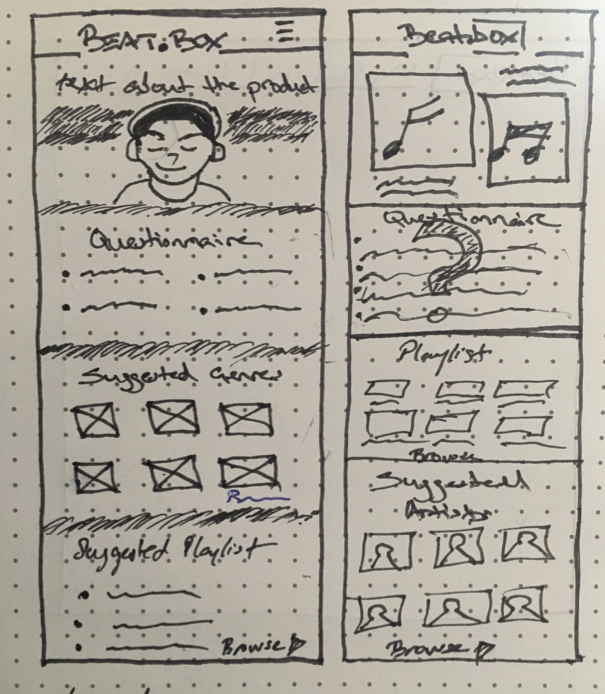 BEAT.BOX
text about the product
Questionnaire
Suggested Genres
Suggested Playlist
Browse
Beatbox
Questionnaire
Playlist
Browse
Suggested
Artists
Browse